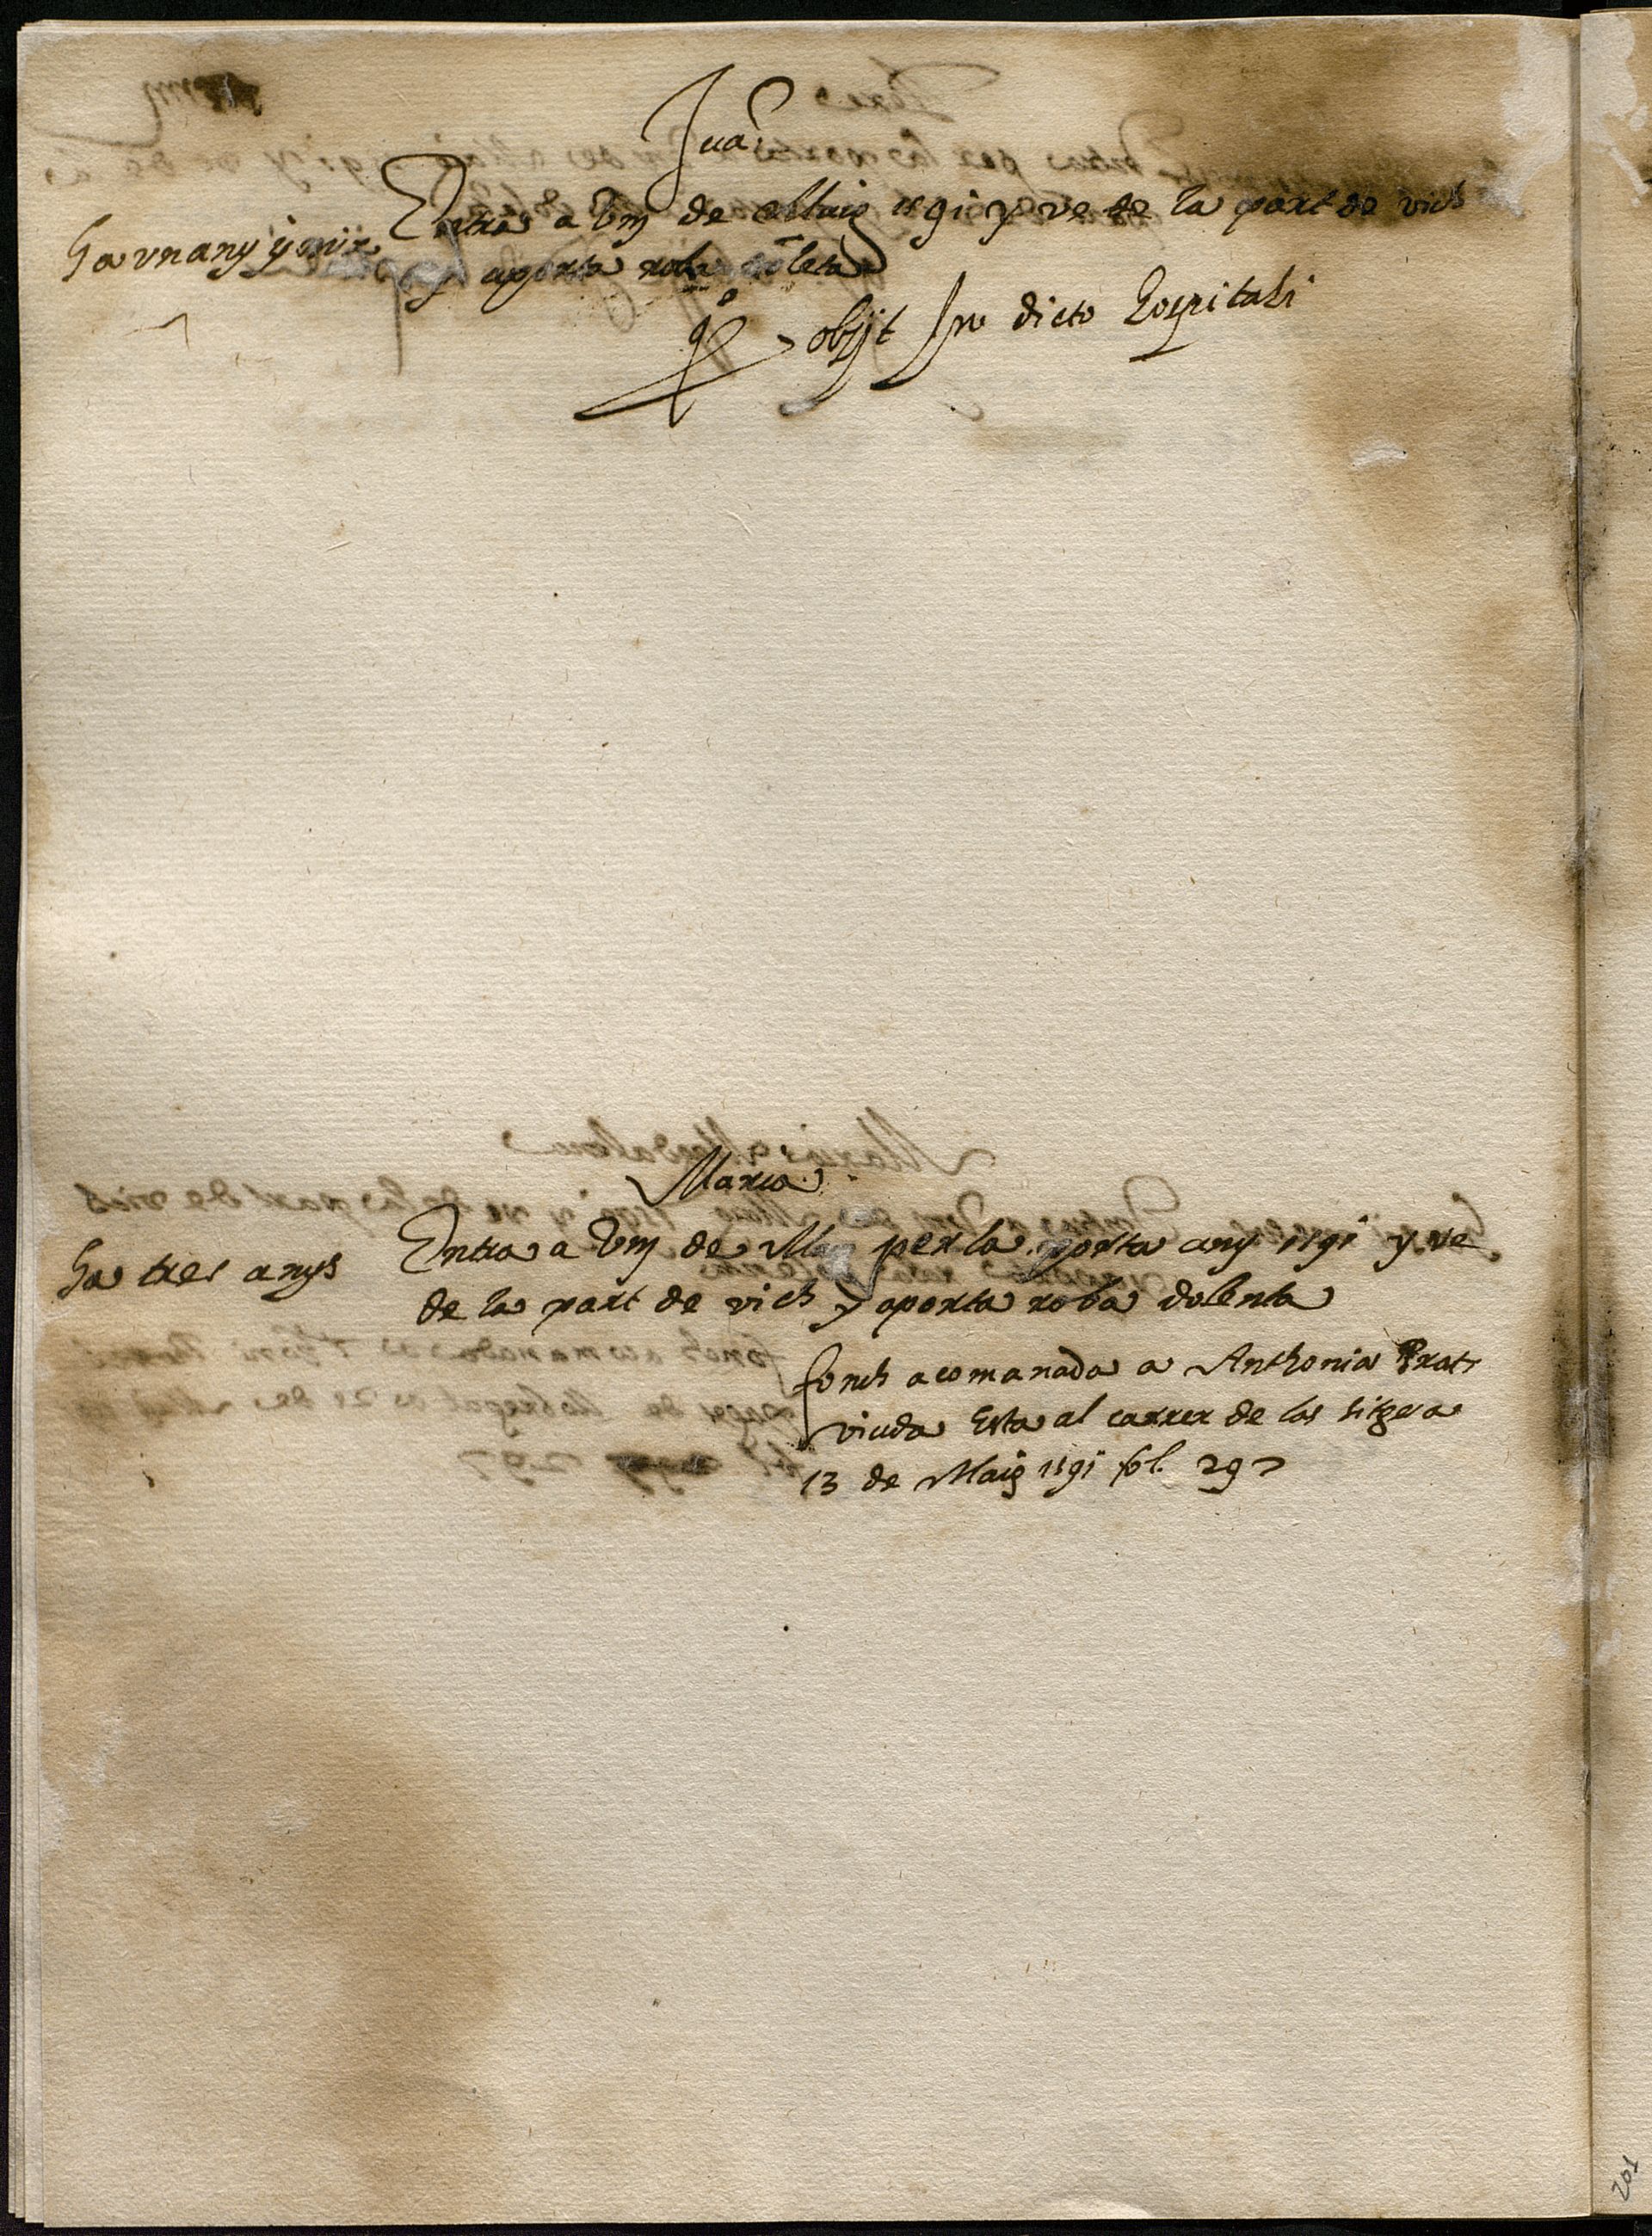 Juā
Ha vn any y mix
Entra a Vm de Maig 1591 y ve de la part de vich
y aporta roba doleta
obijt In dicto Hospitali
Maria
Ha tres anys
Entra a Vm de Maig per la porta any 1591 y ve
de la part de vich y aporta roba dolenta
fonch acomanada a Anthonia Prats
viuda Esta al carrer de las sitgera
13 de Maig 1591 fol. 297
201